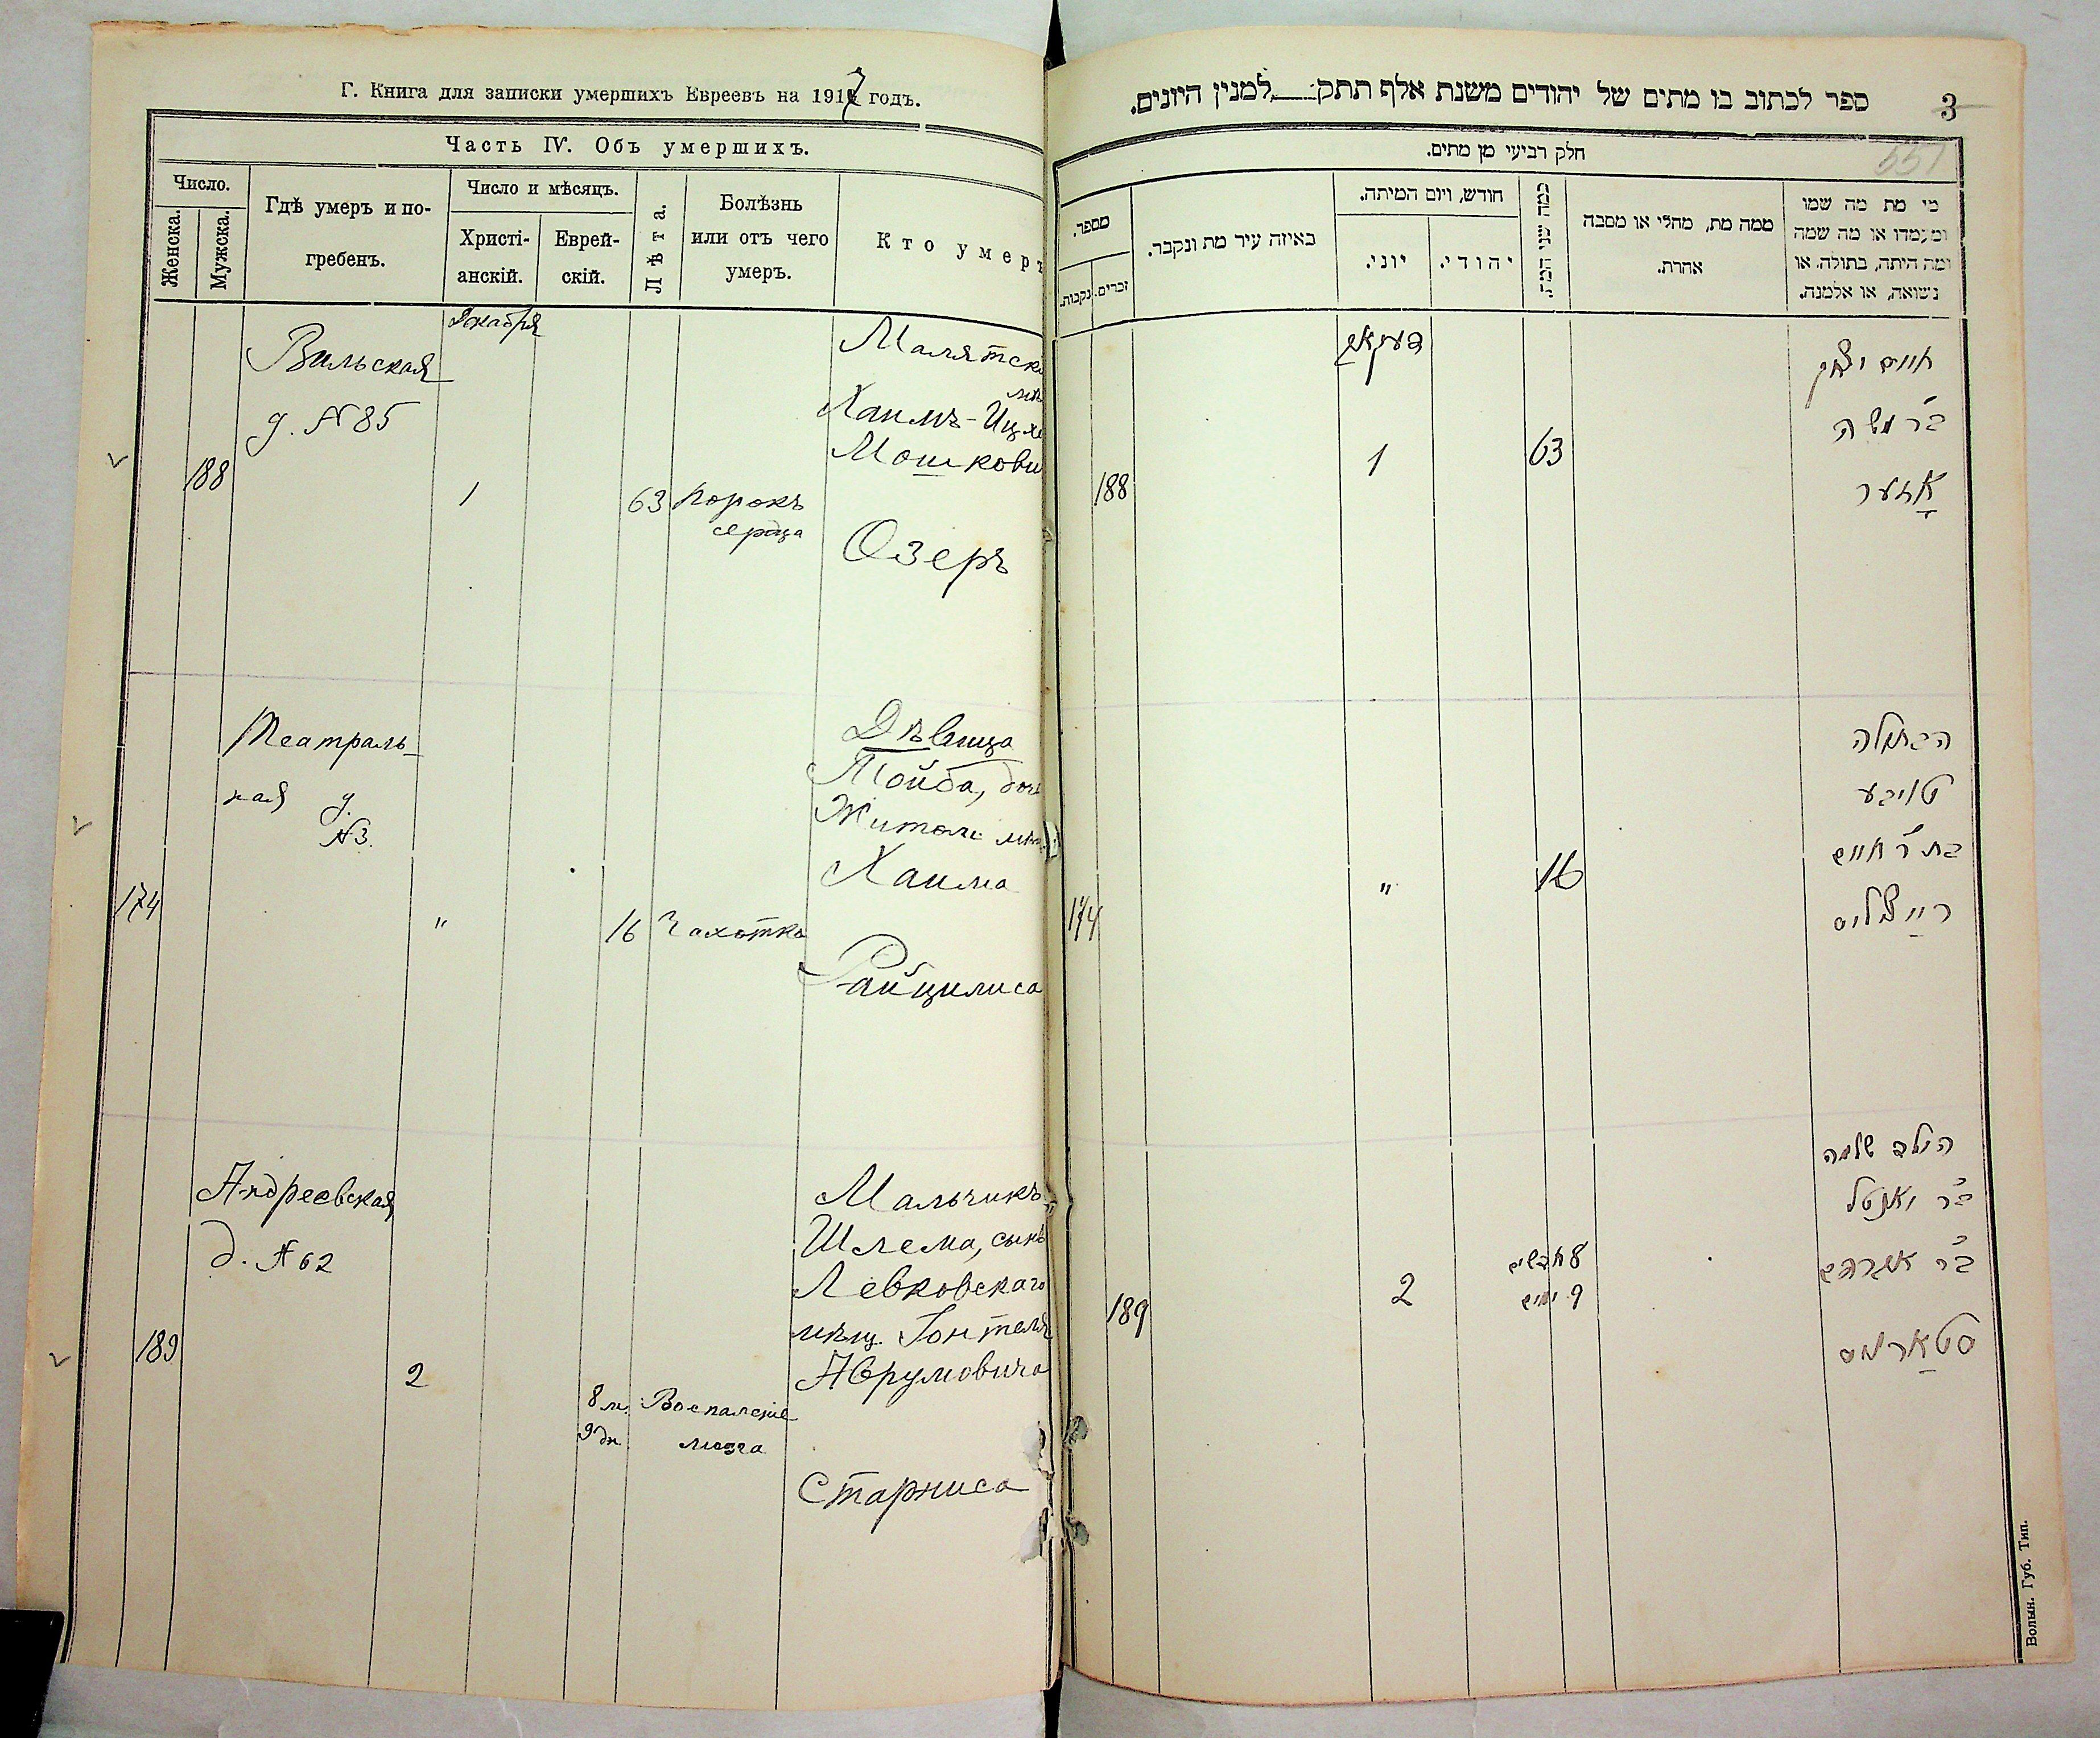 Г. Книга для записки умершихъ Евреевъ на 1917 годъ.
Часть IV. Объ умершихъ.
Число.
Женска.
Мужска.
Гдѣ умеръ и по-
гребенъ.
Число и мѣсяцъ.
Христі-
анскій.
Еврей-
скій.
Лѣта.
Болѣзнь
или отъ чего
умеръ.
Кто умеръ
188
Вильская
д. №85
Декабря
1
63
Порокъ
сердца
Малятск
Хаимъ-Ицхо
Мошкови
Озеръ
174
Театраль-
ная д.
№3.
"
16
Чахотка
Дѣвица
Тойба, дочь
Жители
Хаима
Райцилиса
189
Андреевская
д. №62
2
8 м.
9 дн
Воспаленіе
мозга
Мальчикъ
Шлема, сынъ
Левковскаго
мѣщ.
Аврумовича
Старниса
ספר לכתוב בו מתים של יהודים משנת אלף תתק למנין היונים.
3
557
חלק רביעי מן מתים.
מספר.
נקבות.
זכרים.
באיזה עיר מת ונקבר.
חודש, ויום המיתה.
יוני.
יהודי.
כמה שני המת.
ממה מת, מחלי או מסבה
אחרת.
מי מת מה שמו
ומעמדו או מה שמה
ומה היתה, בתולה, או
נשואה, או אלמנה.
188
דעקאב
1
63
חיים יצחק
ב״ר משה
אָזער
174
"
16
הבתולה
טויבע
בת ר׳ חיים
רייצליס
189
2
8 חדשים
9 ימים
הילד שלמה
ב״ר
ב״ר אברהם
סטאָרניס
Волын. Губ. Тип.